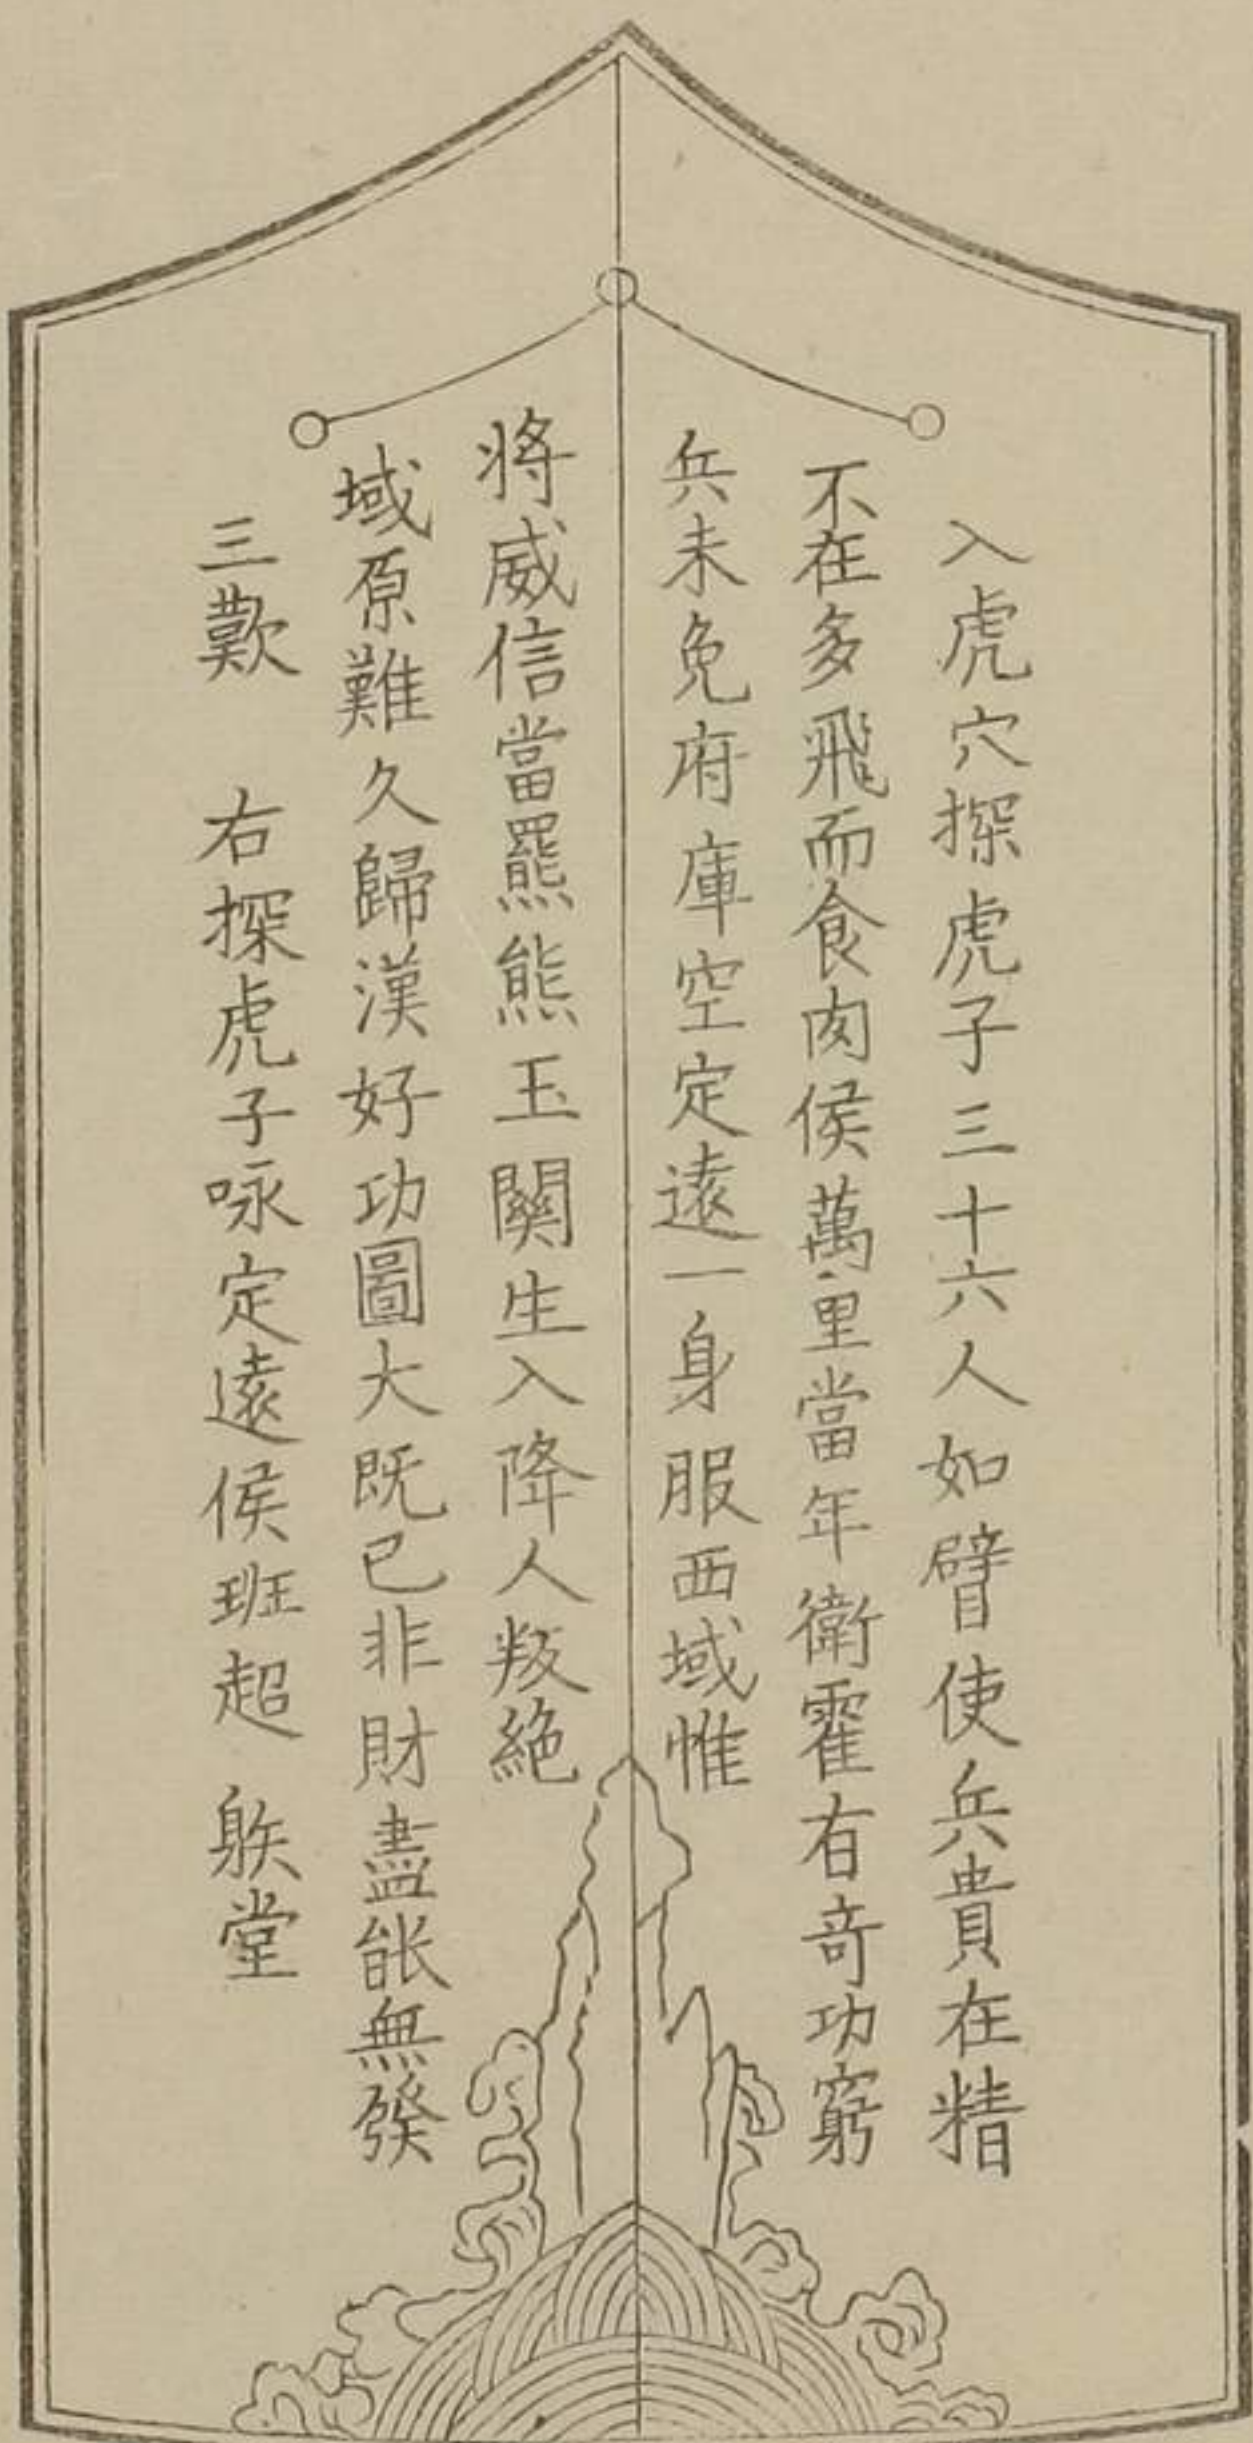 入虎穴探虎子三十六人如臂使兵貴在精
不在多飛而食肉侯萬里當年衛霍有奇功窮
兵未免府庫空定遠一身服西域惟
將威信當羆熊玉關生入降人叛絶
域原難久歸漢好功圖大既已非財盡能無發
三歎　右探虎子咏定遠侯班超　躲堂